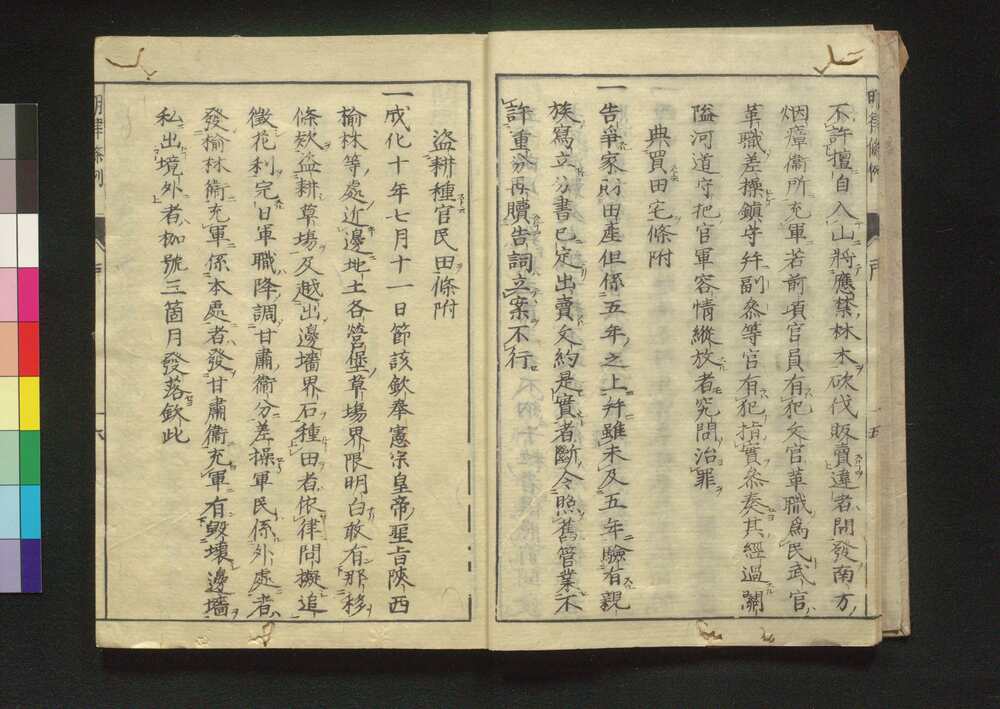 不許擅自入山將應禁林木砍伐販賣違者問發南方
烟瘴衞所充軍若前項官員有犯文官革職爲民武官
革職差操鎮守幷副叅等官有犯指實叅奏其經過關
隘河道守把官軍容情縱放者究問治罪
典買田宅條附
一告爭家財田産但係五年之上幷雖未及五年驗有親
族寫立分書已定出賣文約是實者斷令照舊管業不
許重分再贖告詞立案不行
盜耕種官民田條附
一成化十年七月十一日節該欽奉憲宗皇帝聖旨陝西
榆林等處近邊地土各營堡草場界限明白敢有那移
條欵盜耕草場及越出邊墻界石種田者依律問擬追
徵花利完日軍職降調甘肅衞分差操軍民係外處者
發榆林衞充軍係本處者發甘肅衞充軍有毀壞邊墻
私出境外者枷號三箇月發落欽此
明律條例
戶
五
明律條例
戶
六